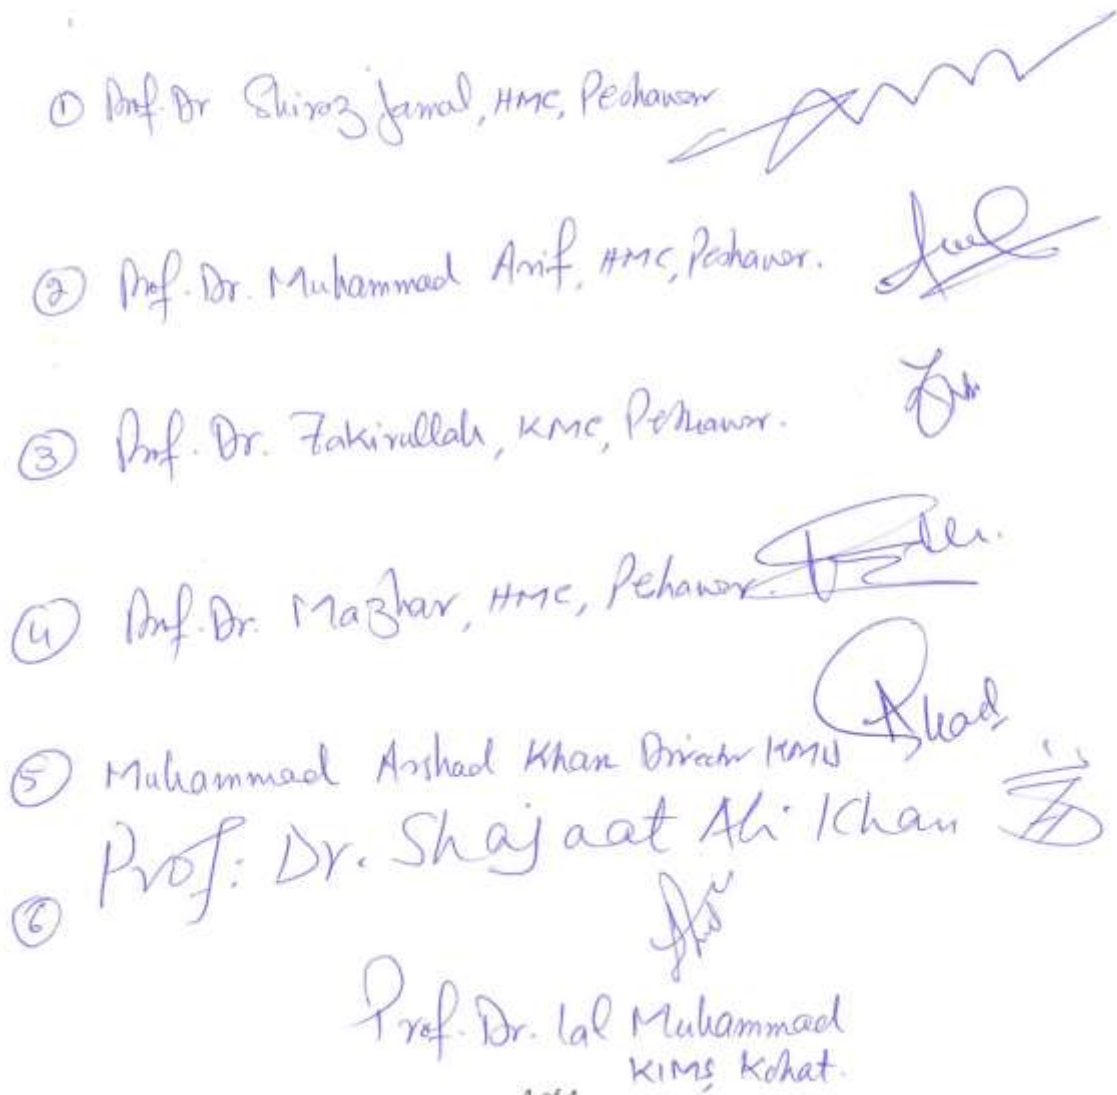 ① Prof. Dr Shiraz Jamal, HMC, Peshawar
② Prof. Dr. Muhammad Arif, HMC, Peshawar.
③ Prof. Dr. Zakirullah, KMC, Peshawar.
④ Prof. Dr. Mazhar, HMC, Pehawar.
⑤ Muhammad Arshad Khan Director KMU Arshad
⑥ Prof: Dr. Shajaat Ali Khan
Prof. Dr. Lal Muhammad
KIMS, Kohat.